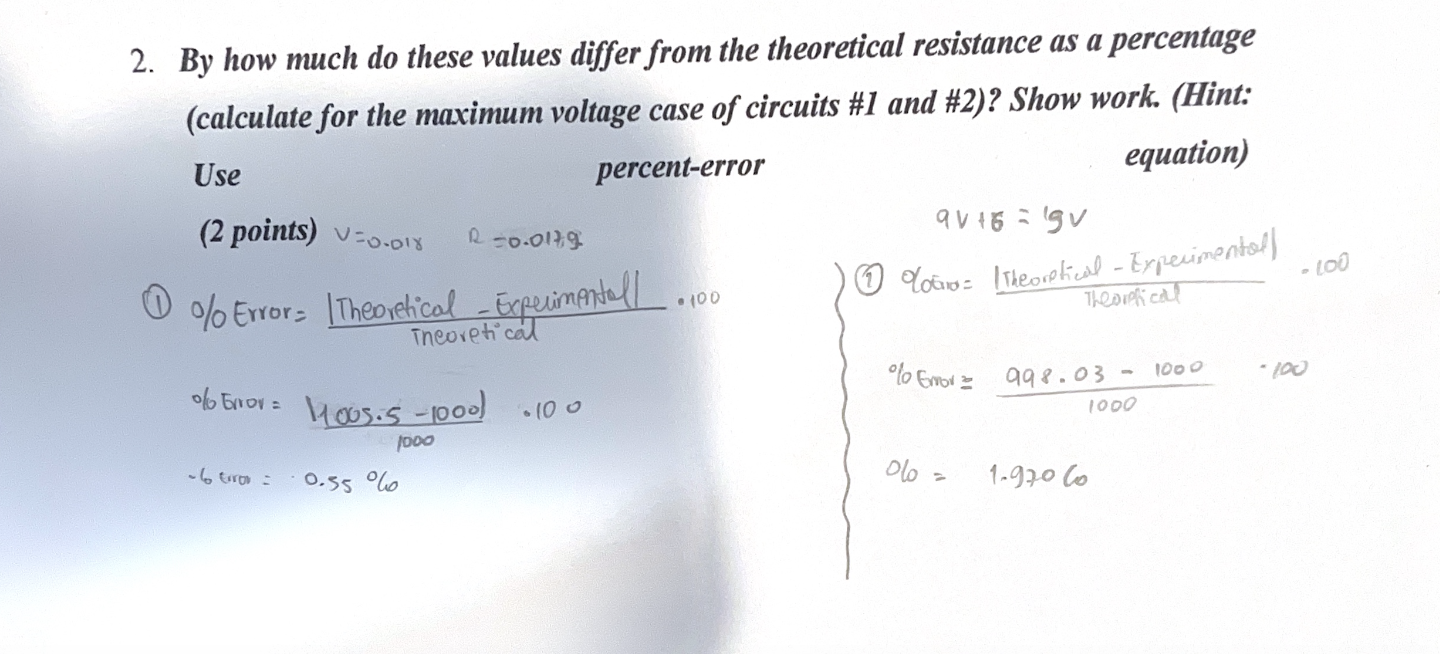 2. By how much do these values differ from the theoretical resistance as a percentage
(calculate for the maximum voltage case of circuits #1 and #2)? Show work. (Hint:
Use percent-error equation)
(2 points) V=0.018 R=0.0179
① % Error = |Theoretical - Experimental| / Theoretical · 100
% Error = |1005.5 - 1000| / 1000 · 100
% Error = 0.55 %
9V+
② % Error = |Theoretical - Experimental| / Theoretical · 100
% Error = 998.03 - 1000 / 1000 · 100
% = 1.97%